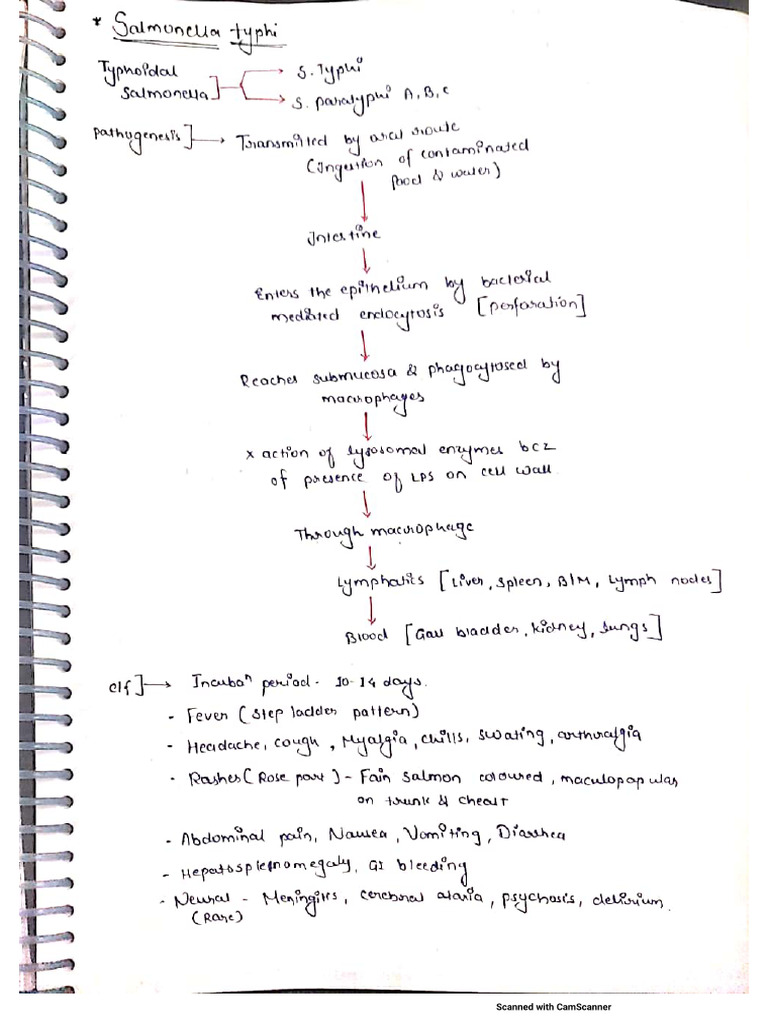 * Salmonella typhi
Typhoidal
Salmonella]
S. Typhi
S. paratyphi A, B, C
Pathogenesis] → Transmitted by oral route
(Ingestion of contaminated
food & water)
Intestine
Enters the epithelium by bacterial
mediated endocytosis [perforation]
Reaches submucosa & phagocytosed by
macrophages
x action of lysosomal enzymes bcz
of presence of LPS on cell wall
Through macrophage
Lymphatics [Liver, Spleen, B/M, Lymph nodes]
Blood [Gall bladder, kidney, Lungs]
c/f] → Incubaⁿ period - 10-14 days.
- Fever (step ladder pattern)
- Headache, cough, Myalgia, chills, swating, arthralgia
- Rashes (Rose part) - Fain salmon coloured, maculopapular
on trunk & cheast
- Abdominal pain, Nausea, Vomiting, Diarrhea
- Hepatosplenomegaly, GI bleeding
- Neural - Meningitis, cerebral ataxia, psychosis, delirium.
(Rare)
Scanned with CamScanner